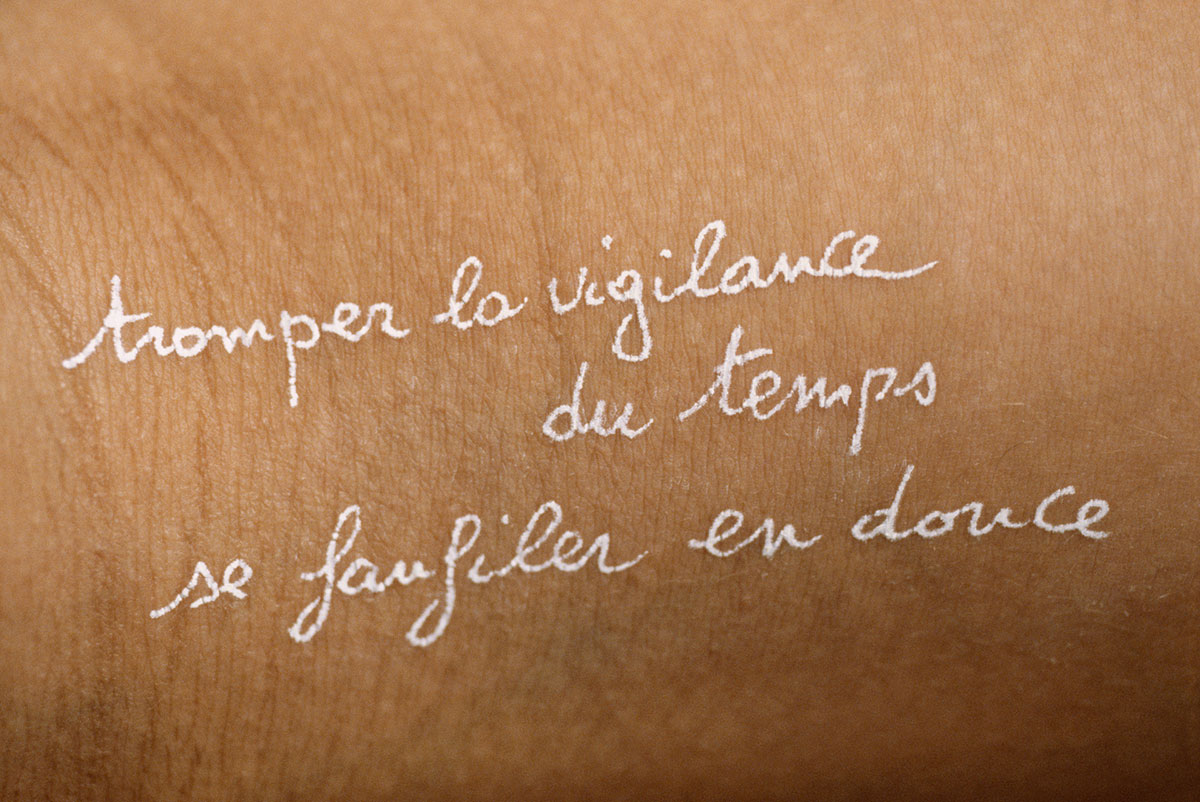 tromper la vigilance
du temps
se faufiler en douce